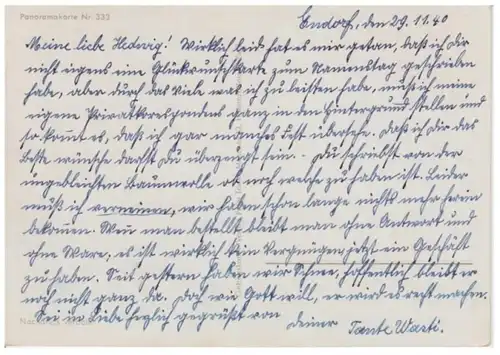 Panoramakarte Nr. 332
Endorf, den 29.11.40
Meine liebe Hedwig! Wirklich leid hat es mir getan, daß ich dir
nicht eigens ein Glückwunschkarte zum Namenstag geschrieben
habe, aber durch das Viele was ich zu leisten habe, muß ich meine
eigene Privatkorrespondenz ganz in den Hintergrund stellen und
so kommt es, daß ich gar manches Fest übersehe. Daß ich dir das
Beste wünsche darfst Du überzeugt sein. - Du schriebst von der
ungebleichten Baumwolle ob noch welche zu haben ist. Leider
muß ich verneinen, wir haben schon lange nichts mehr herein
bekommen. Wenn man bestellt bleibt man ohne Antwort und
ohne Ware, es ist wirklich kein Vergnügen jetzt ein Geschäft
zu haben. Seit gestern haben wir Schnee, hoffentlich bleibt er
noch nicht ganz da. Doch wie Gott will, er wird es recht machen.
Sei in Liebe herzlich gegrüßt von
deiner Tante Wasti.